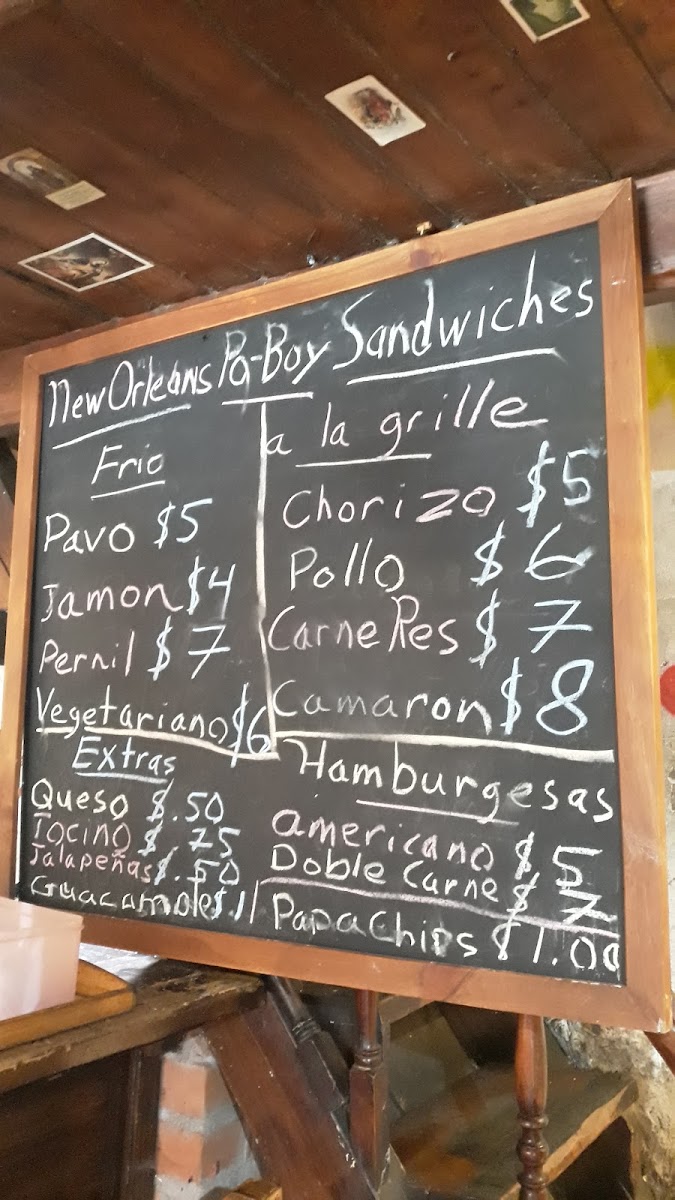 New Orleans Po-Boy Sandwiches
Frio
Pavo $5
Jamon $4
Pernil $7
Vegetariano $6
Extras
Queso $.50
Tocino $.75
Jalapeñas $.50
Guacamole
a la grille
Chorizo $5
Pollo $6
Carne Res $7
Camaron $8
Hamburgesas
americano $5
Doble Carne $7
Papa Chips $1.00